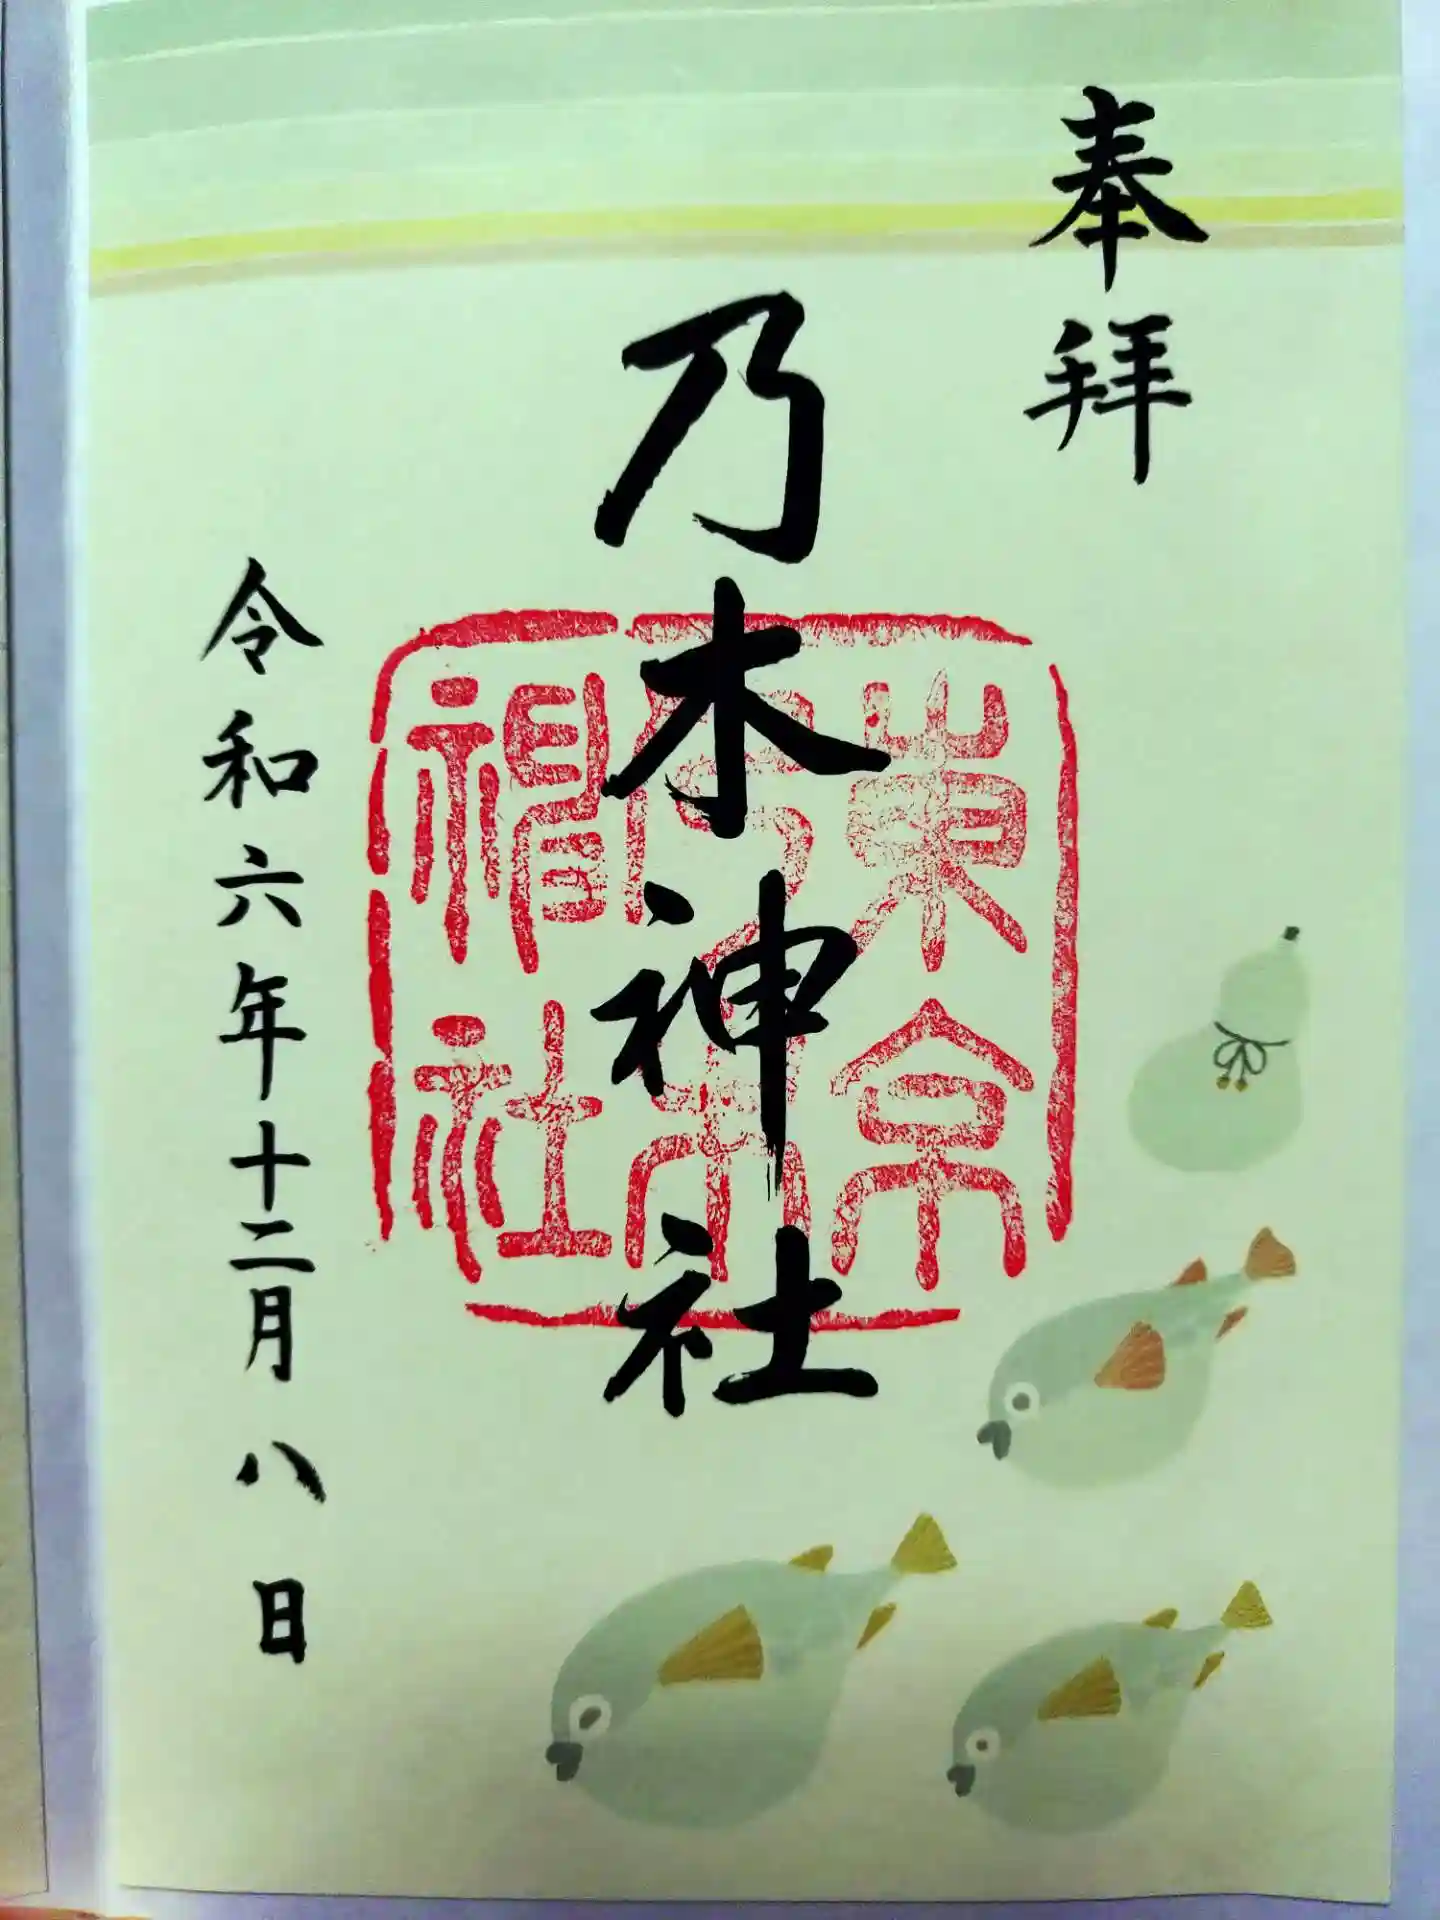 奉拝
乃木神社
東京
乃木
神社
令和六年十二月八日